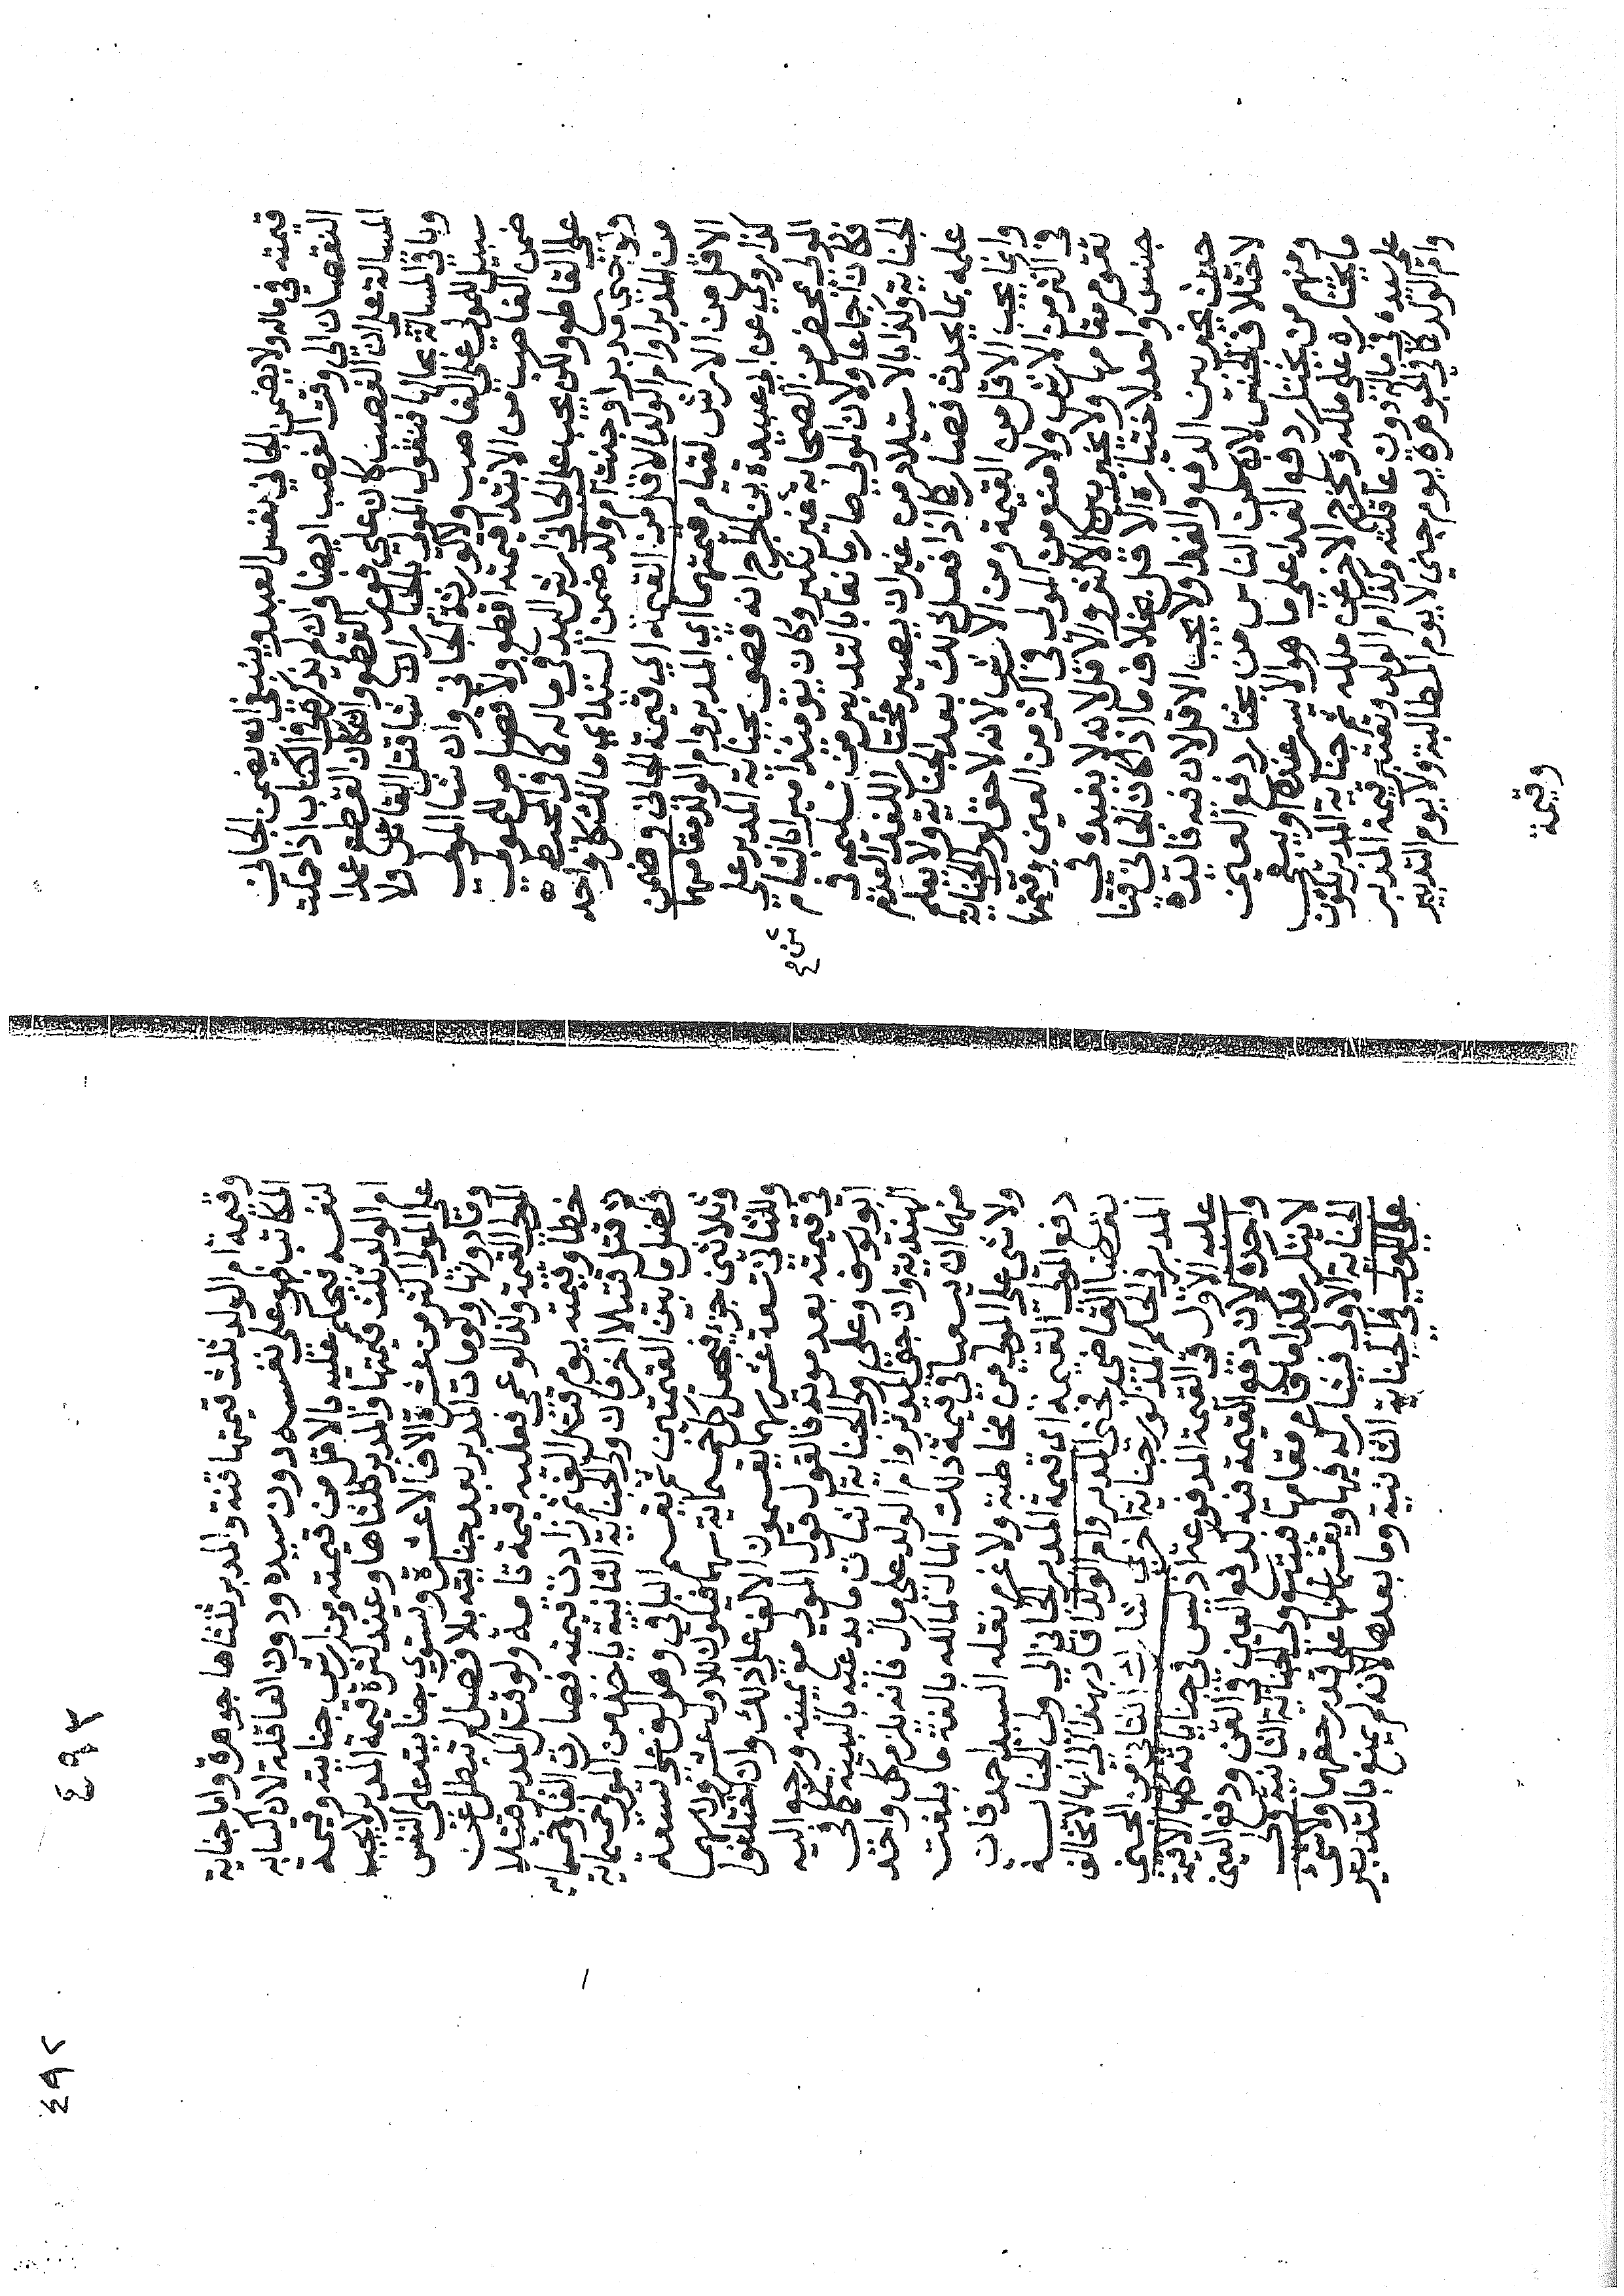 قيمته في ماله ولا يضمن الجاني نفس العبد وينبغي ان يضمن الجاني
النقصان الى وقت الغصب ايضا وان لم يذكر في الكتاب اذا حملت
المسالة على ان الغصب كان على فور القطع وان كان القطع عمدا
وباقي المسالة بحالها فنقول المولى بالخيار ان شا قتل القاتل ولا
سبيل للمولى على الغاصب ولا لورثة الجاني وان شا المولى
ضمن الغاصب من الابتدا قيمته اقطع ولا قصاص للمولى
على القاطع ولكن يجب على الجاني ارش اليد في ماله كما في المحيط
ولو جنى مدبر او جنت ام ولد ضمن السيد اي مالك كل واحد
من المدبر وام الولد الاقل من القيمة اي قيمة الجاني فيضمن
الاقل من الارش لقيام قيمتهما اي المدبر وام الولد مقامهما
كذا روي عن ابي عبيدة بن الجراح انه قضى بجناية المدبر على
المولى بمحضر من الصحابة غير نكير وكان يومئذ اميرا بالشام
من ع
فكان اجماعا ولان المولى صار مانعا بالتدبير من تسليمه في
الجناية وكذا بالاستيلاد من غير ان يصير مختارا للفدا لعدم
علمه بما يحدث فصار كما اذا فعل ذلك بعد الجناية ولا يعلم
وانما يجب الاقل من القيمة ومن الارش لانه لا حق لولي الجناية
في اكثر من الارش ولا منع من المولى في اكثر من العين وقيمتها
تقوم مقامها ولا يخير بين الاكثر والاقل لانه لا يفيد في
جنس واحد لاختياره الاقل بخلاف ما اذا كان الجاني قنا
حيث يخير بين الدفع والفدا ولا يجب الاقل لان فيه فايدة
لاختلاف الجنس لان من الناس من يختار دفع العين
ومنهم من يختار دفع الفدا على ما هو الايسر عنده او يبقى
ما يختاره على ملكه ويخرج الاخر عن ملكه ثم جناية المدبر تكون
على سيده في ماله دون عاقلته وكذا ام الولد وتعتبر قيمة المدبر
وام الولد كما في الجوهرة يوم جنى لا يوم المطالبة ولا يوم التدبير
وقيمة
وقيمة ام الولد ثلث قيمتها قنة والمدبر ثلثاها جوهرة واما جناية
المكاتب فهو على نفسه دون سيده ودون العاقلة لان اكسابه
لنفسه فيحكم عليه بالاقل من قيمته ومن ارش جنايته وقيمة
ام الولد ثلث قيمتها والمدبر ثلثاها وعند كثرة قيمة المدبر لا يجب
على المولى اكثر من عشرة الاف الا عشرة ويستوي جنايته على النفس
وما دونها ولو مات المدبر بعد جنايته بلا فصل لم تبطل عن
المولى القيمة وكذا لو عمي فعليه قيمة تامة ولو قتل المدبر قتيلا
خطا وقيمته يوم قتل الف ثم زادت قيمته فصارت الفا وخمسماية
ثم قتل قتيلا اخر فان ولي الجناية الثانية ياخذ من المولى خمسماية
فضل ما بين القيمتين ثم يقسم الباقي وهو الف على تسعة
وثلاثين جزء فيجعل كل خمسماية سهما فيكون للاول عشرون سهما
وللثاني تسعة عشر سهما يقسمون الالف على ذلك وان اختلفوا
في قيمته بعد موته فالقول قول المولى مع يمينه ورجع اليه
ابو يوسف وعلى ولي الجناية اثبات ما يدعيه بالبينة كما في
الهندية وان جنى المدبر وام الولد على مال فانه يلزم كل واحد
منهما ان يسعيا في قيمة ذلك المال لمالكه بالغة ما بلغت
ولا شي على المولى من مخاطبة ولا غرم نقله السيد احمد فان
دفع المولى القيمة اي قيمة المدبر الجاني الى ولي الجناية
بقضا القاضي فجنى المدبر وام الولد افاد بهذا انها لا تخالف
المدبر في الحكم المذكور جناية اخرى شارك الثاني من المجني
عليه الاول في القيمة المدفوعة اذ ليس في جناياته كلها الا قيمة
واحدة لان دفع القيمة فيه كدفع العين في القن ودفع العين
لا يتكرر فكذا ما قام مقامها فيتبع ولي الجناية الثانية ولي
الجناية الاولى فيشاركه فيها ويقتسمانها على قدر حقهما ولا شي
على المولى في الجناية الثانية وما بعدها لانه لم يمنع بالتدبير
٤٩٣
٤٩٢